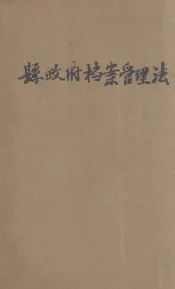 縣政府档案管理法